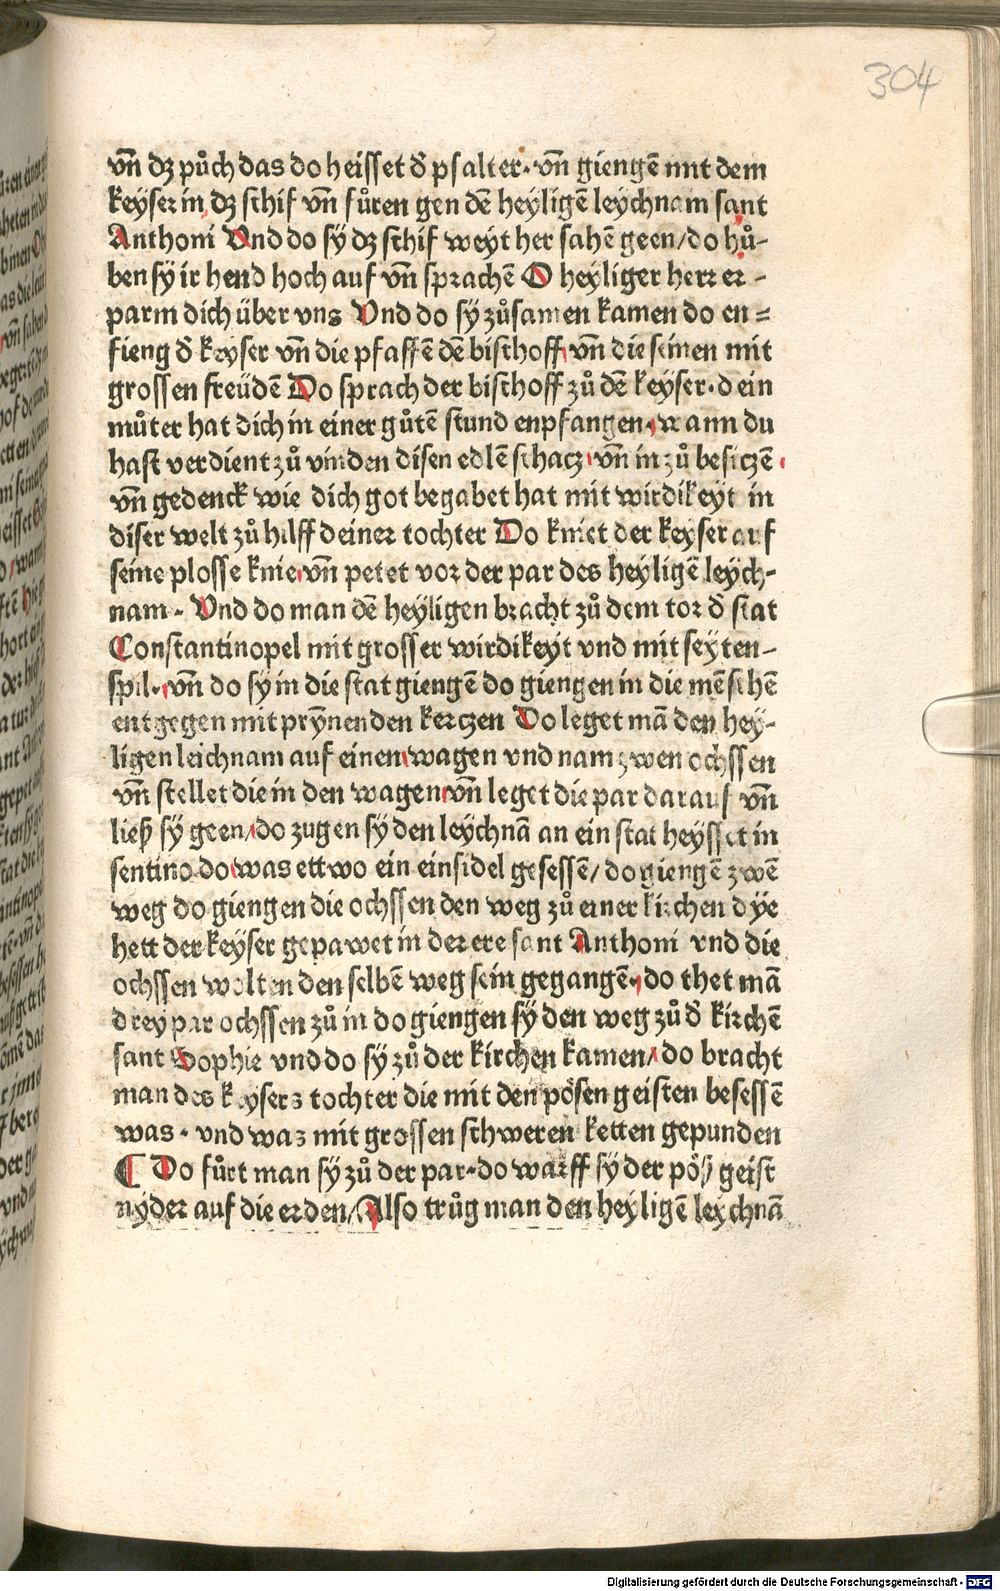 304
vn̄ dz půch das do heisset d̕ psalter· vn̄ giengē mit dem
keyser in dz schif vn̄ fůren gen dē heyligē leychnam sant
Anthoni Vnd do sÿ dz schif weyt her sahē geen/do hů-
ben sÿ ir hend hoch auf vn̄ sprachē O heyliger herr er-
parm dich über vns Vnd do sy zůsamen kamen do en=
fieng d̕ keyser vn̄ die pfaffē dē bischoff vn̄ die seinen mit
grossen freüdē Do sprach der bischoff zů dē keyser·dein
můter hat dich in einer gůtē stund enpfangen· wann du
hast verdient zů vinden disen edlē schacz vn̄ in zů besiczē
vn̄ gedenck wie dich got begabet hat mit wirdikeyt in
diser welt zů hilff deiner tochter Do kniet der keyser auf
seine plosse knie vn̄ petet vor der par des heyligē leych-
nam· Vnd do man dē heyligen bracht zů dem tor d̕ stat
Constantinopel mit grosser wirdikeyt vnd mit seyten-
spil· vn̄ do sy in die stat giengē do giengen in die mēschē
entgegen mit prynnenden kerczen Do leget mā den hey-
ligen leichnam auf einen wagen vnd nam zwen ochssen
vn̄ stellet die in den wagen vn̄ leget die par darauf vn̄
ließ sÿ geen/do zugen sÿ den leychnā an ein stat heysset in
sentino do was ettwo ein einsidel gesessē/do giengē zwē
weg do giengen die ochssen den weg zů einer kirchen dÿe
hett der keyser gepawet in der ere sant Anthoni vnd die
ochssen wolten den selbē weg sein gegangē· do thet mā
drey par ochssen zů in do giengen sÿ den weg zů d̕ kirchē
sant Sophie vnd do sÿ zů der kirchen kamen/do bracht
man des keysers tochter die mit den pösen geisten besessē
was· vnd was mit grossen schweren ketten gepunden
¶ Do fůrt man sÿ zů der par·do warff sy der pöß geist
nyder auf die erden/Also trůg man den heyligē leychnā
Digitalisierung gefördert durch die Deutsche Forschungsgemeinschaft - DFG